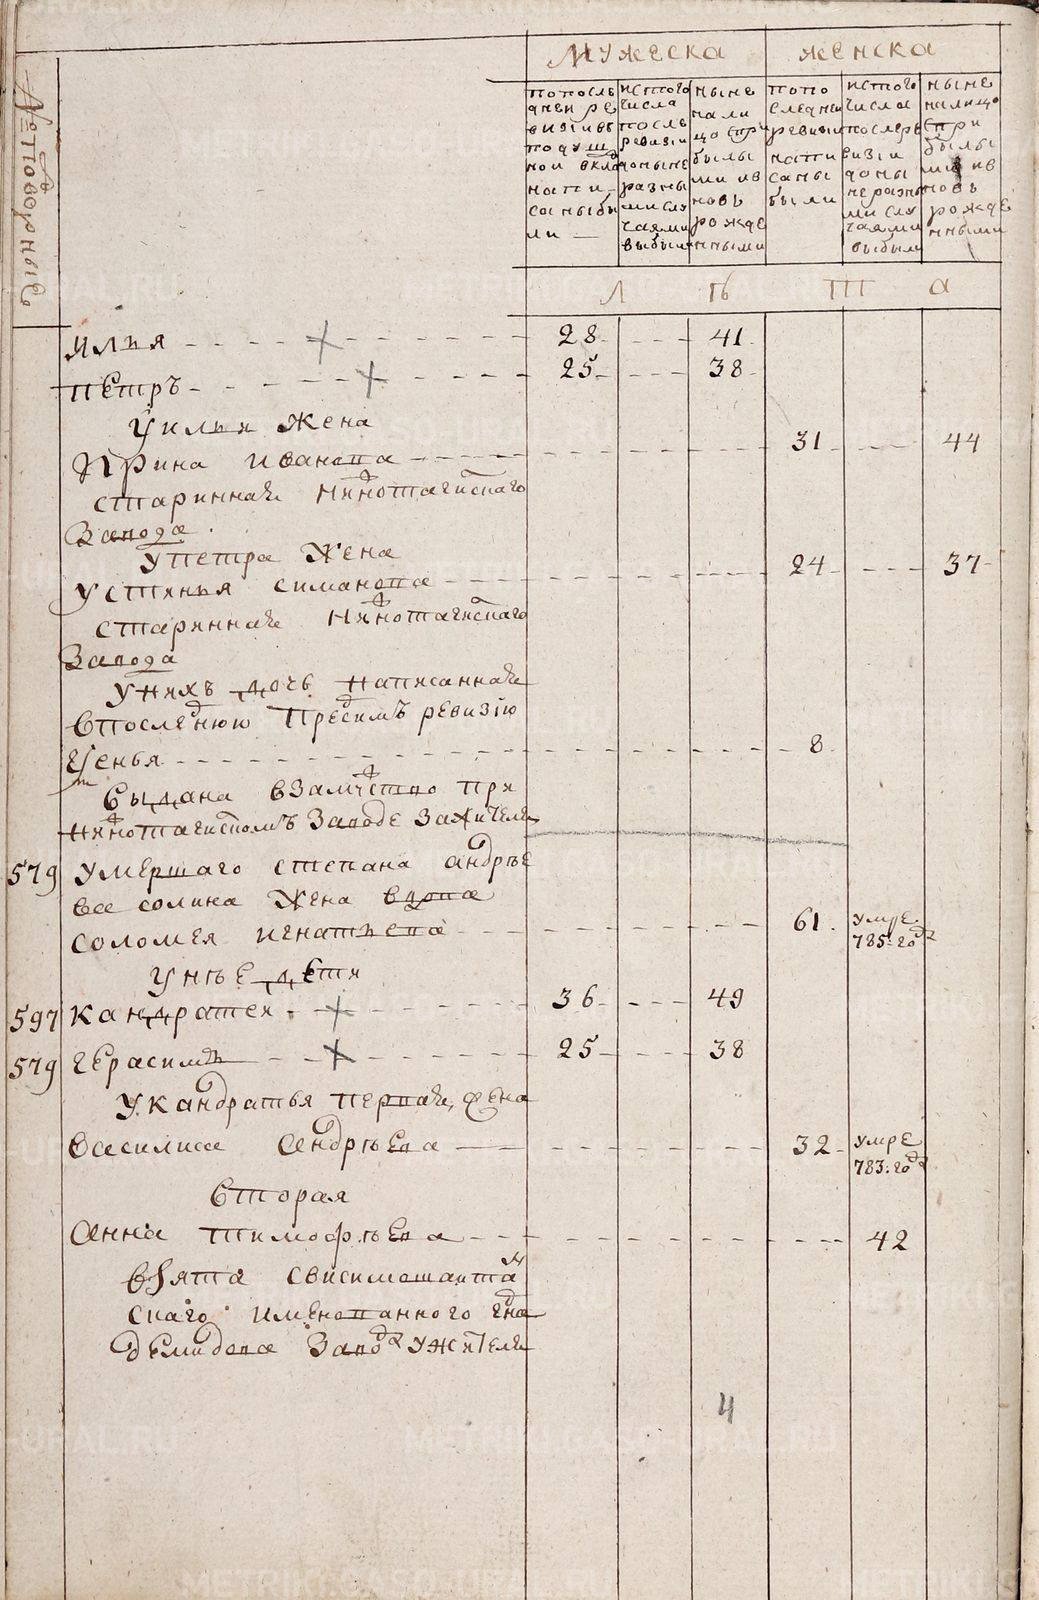 Мужеска
женска
№ подворные
попосле
дней ре
визiи въ
подуш
ной окла
напи
саны бы
ли —
истого
числа
после
ревизiи
доныне
разны
ми слу
чаями
выбыли
ныне
нали
цо спри
былы
ми ив
новь
рожде
нными
попо
следней
ревизiи
напи
саны
были
истого
числа
послере
визiи
доны
не разны
ми слу
чаями
выбыли
ныне
налицо
спри
былы
ми ив
новь
рожде
нными
л ѣ т а
илья 28 41
петръ 25 38
у ильи жена
Ирина иванова 31 44
стариннаго Нижнотагилскаго
завода
у петра жена
устинья симанова 24 37
стариннаго Нижнотагилскаго
завода
у нихъ дочь написанная
в последнюю пред симъ ревизiю
8
выдана взамужство при
нижнотагилскомъ заводе зажителя
579 умершаго степана андрѣе
ва солина жена вдова
соломея игнатьева 61 умре 785 году
у нѣе дети
597 кандратей 36 49
579 герасимъ 25 38
у кандратья первая жена
василиса андрѣева 32 умре 783 году
вторая
анна тимофѣева 42
взята свисимошаитан
скаго именованного гна
демидова завода ужителя
4
METRIKI.GASO-URAL.RU